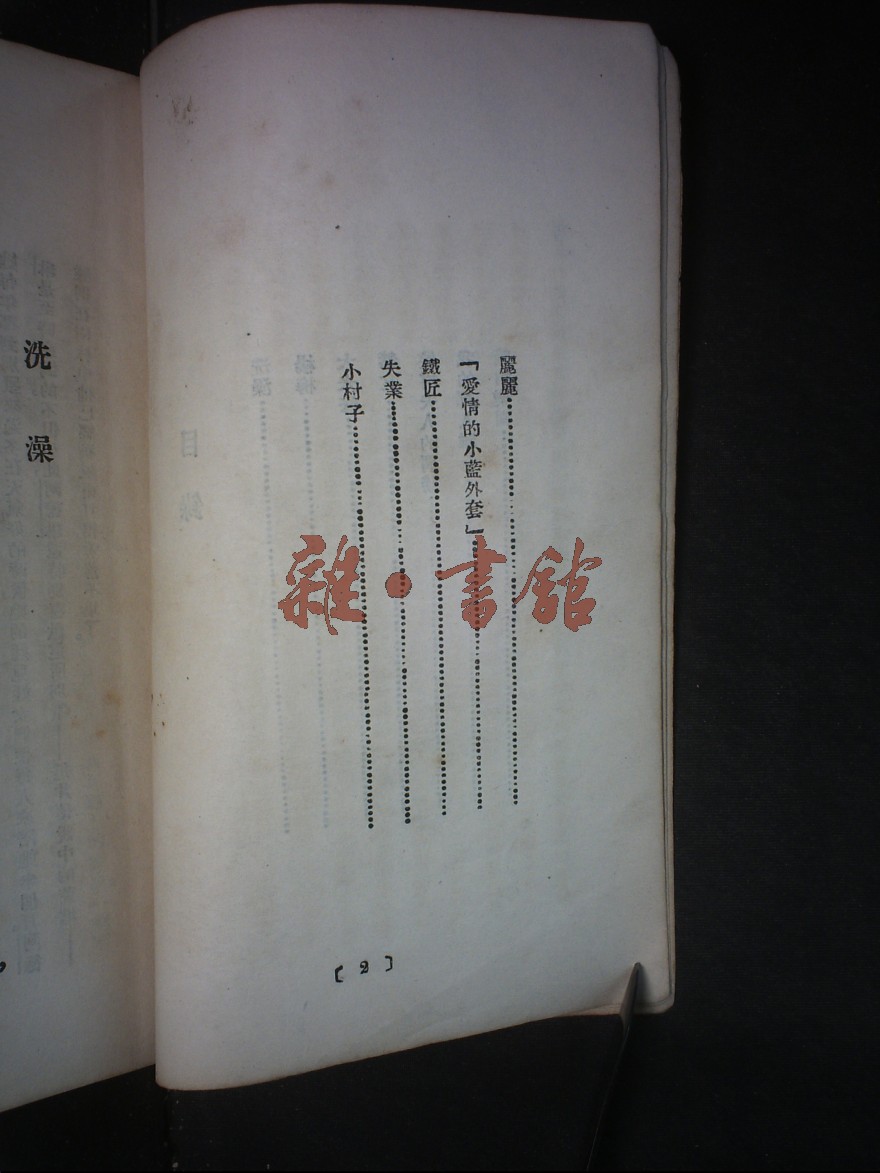 麗麗……………………………………
「愛情的小藍外套」……………………
鐵匠……………………………………
失業……………………………………
小村子…………………………………
〔2〕
洗澡
雜·書館